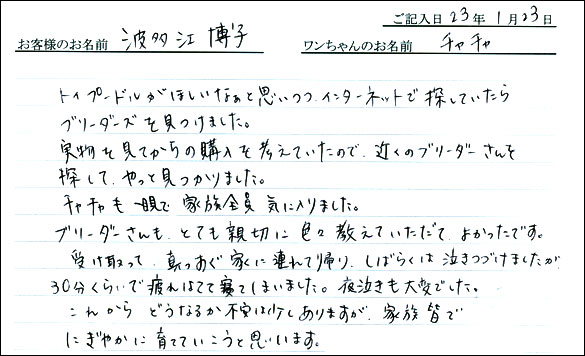 ご記入日 23年 1月23日
お客様のお名前 波多江 博子 ワンちゃんのお名前 チャチャ
トイプードルがほしいなぁと思いつつ、インターネットで探していたら
ブリーダーズを見つけました。
実物を見てからの購入を考えていたので、近くのブリーダーさんを
探して、やっと見つかりました。
チャチャも一眼で家族全員気に入りました。
ブリーダーさんも、とても親切に色々教えていただだて、よかったです。
受け取って、真っすぐ家に連れて帰り、しばらくは泣きつづけましたが
30分くらいで疲れはてて寝てしまいました。夜泣きも大変でした。
これからどうなるか不安は少しありますが、家族皆で
にぎやかに育てていこうと思います。